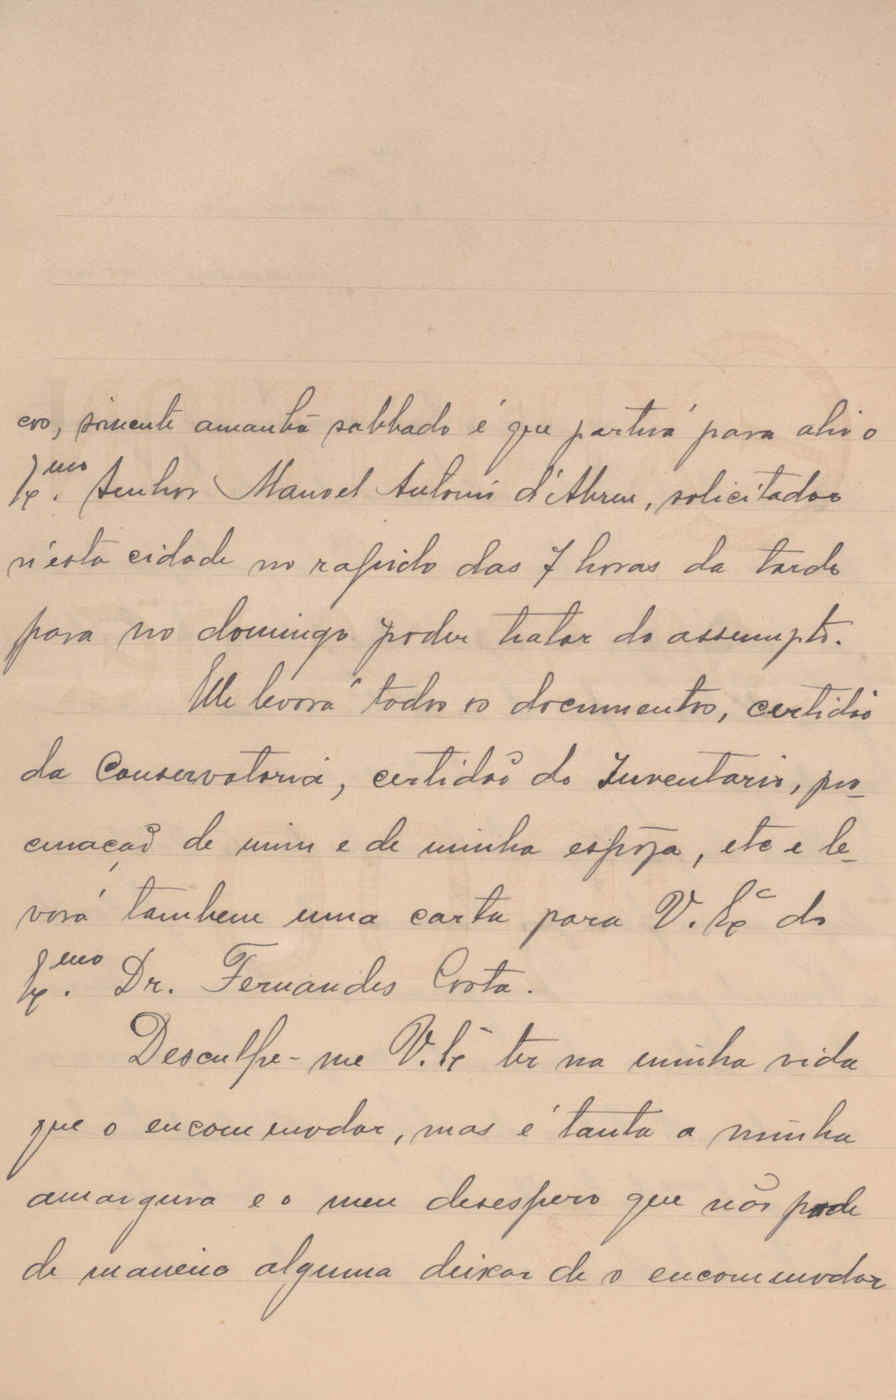 ero, sómente amanhã sabbado é que partirá para ahi o
Ex.mo Senhor Manoel Antonio d'Abreu, solicitador
n'esta cidade no rapido das 7 horas da tarde
para no domingo poder tratar do assumpto.
Elle levará todos os documentos, certidão
da Conservatoria, certidão do Inventario, pro-
curação de mim e de minha espôza, etc e le-
vará tambem uma carta para V. Exc do
Ex.mo Dr. Fernandes Costa.
Desculpe-me V. Ex ter na minha vida
que o encommodar, mas é tanta a minha
amargura e o meu desespero que não pode
de maneira alguma deixar de o encommodar